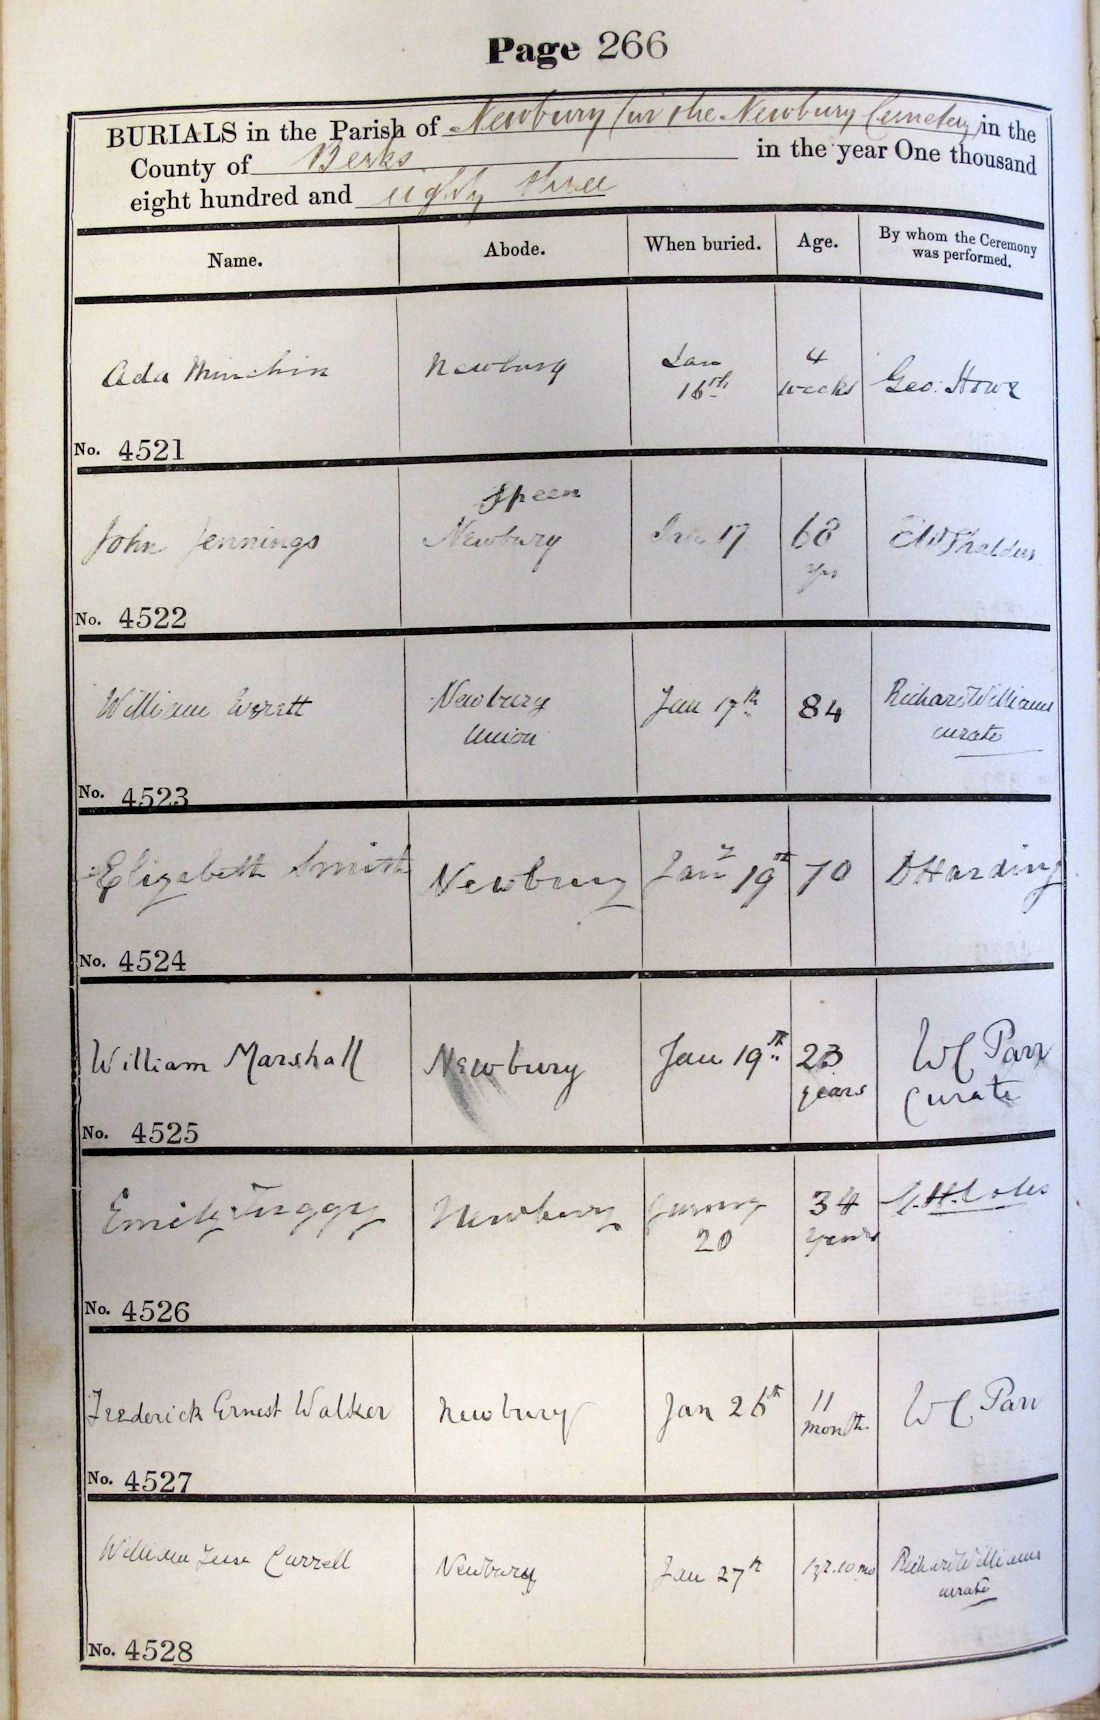 Page 266
BURIALS in the Parish of Newbury in the Newbury Cemetery in the
County of Berks in the year One thousand
eight hundred and eighty three
Name. Abode. When buried. Age. By whom the Ceremony was performed.
Ada Minchin Newbury Jan 16th 4 weeks Geo: Howe
No. 4521
Speen
John Jennings Newbury Jan 17 68 yrs
No. 4522
William Everett Newbury Union Jan 17th 84 Richard Williams curate
No. 4523
Elizabeth Smith Newbury Jany 19th 70 D Harding
No. 4524
William Marshall Newbury Jan 19th 23 years W C Parr Curate
No. 4525
Emily Tuggy Newbury January 20 34 years
No. 4526
Frederick Ernest Walker Newbury Jan 26th 11 month. W C Parr
No. 4527
William Currell Newbury Jan 27th 1 yr. 10 mo Richard Williams curate
No. 4528